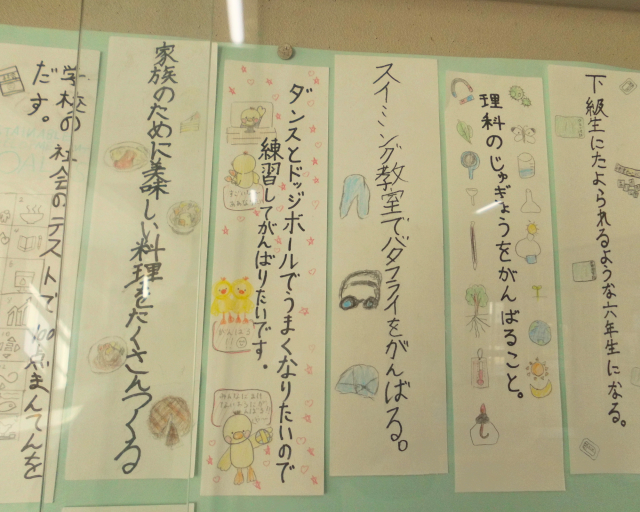 下級生にたよられるような六年生になる。
理科のじゅぎょうをがんばること。
スイミング教室でバタフライをがんばる。
ダンスとドッジボールでうまくなりたいので
練習してがんばりたいです。
家族のために美味しい料理をたくさんつくる
学校の社会のテストで100点まんてんを
だす。